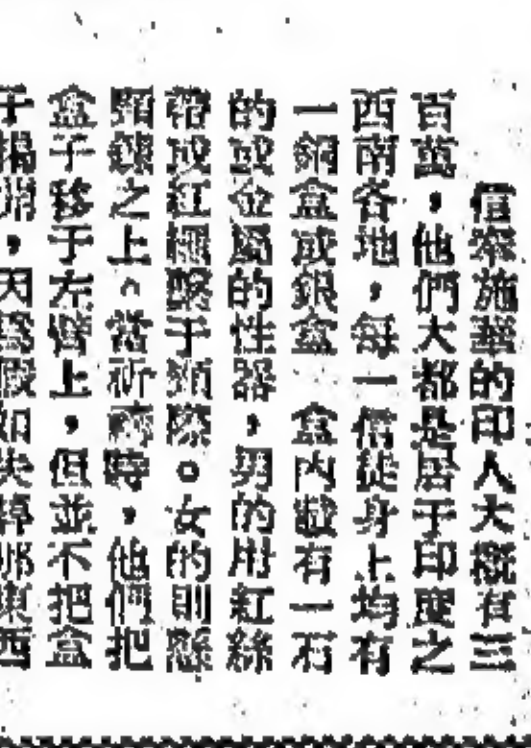 信奉施華的印人大概有三
百萬，他們大都是居于印度之
西南各地，每一信徒身上均有
一銅盒或銀盒　盒內藏有一石
的或金屬的性器，男的用紅絲
帶或紅繩繫于頸際。女的則懸
頸鍊之上。當祈禱時，他們把
盒子移于左臂上，但並不把盒
子揭開，因爲假如失掉那東西